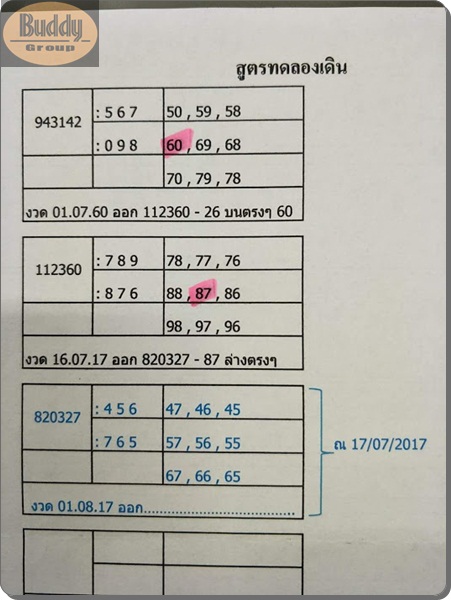 Buddy
Group
สูตรทดลองเดิน
943142 : 5 6 7 50 , 59 , 58
: 0 9 8 60 , 69 , 68
70 , 79 , 78
งวด 01.07.60 ออก 112360 - 26 บนตรงๆ 60
112360 : 7 8 9 78 , 77 , 76
: 8 7 6 88 , 87 , 86
98 , 97 , 96
งวด 16.07.17 ออก 820327 - 87 ล่างตรงๆ
820327 : 4 5 6 47 , 46 , 45
: 7 6 5 57 , 56 , 55
ณ 17/07/2017
67 , 66 , 65
งวด 01.08.17 ออก......................................